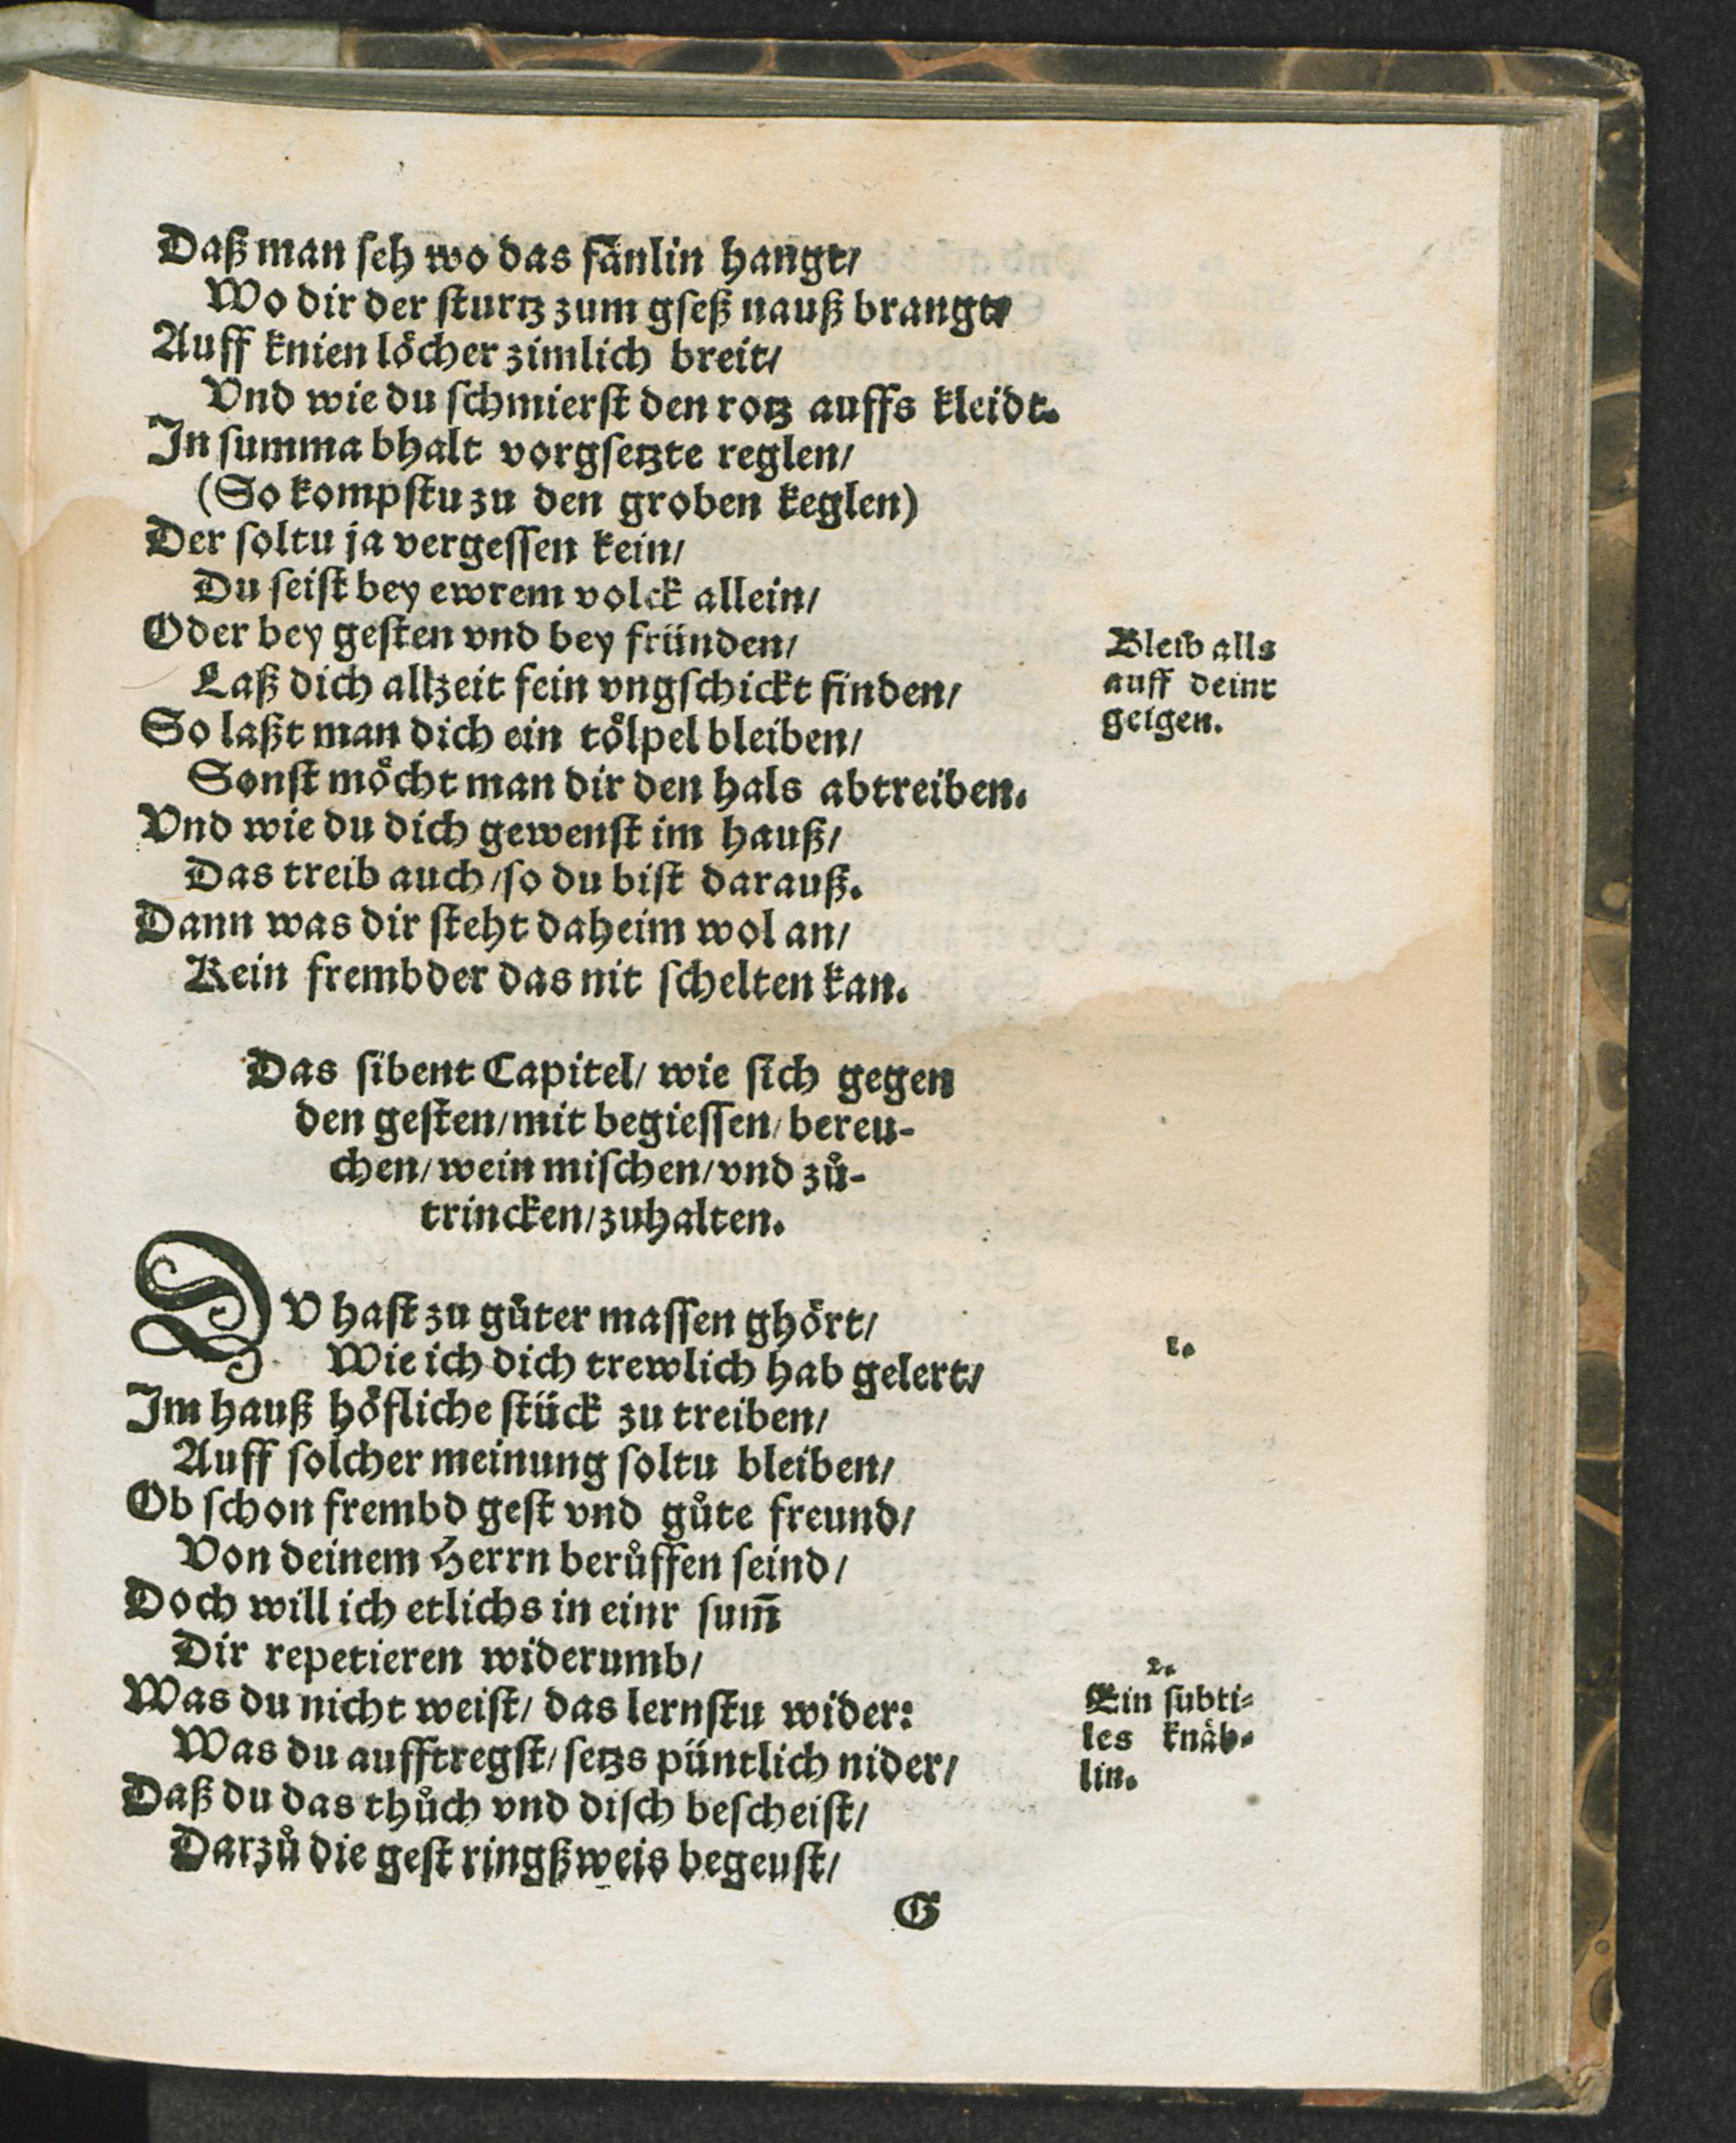 Daß man seh wo das fänlin hangt/
Wo dir der sturtz zum gseß nauß brangt/
Auff knien löcher zimlich breit/
Vnd wie du schmierst den rotz auffs kleidt.
In summa bhalt vorgsetzte reglen/
(So kompstu zu den groben keglen)
Der soltu ja vergessen kein/
Du seist bey ewrem volck allein/
Oder bey gesten vnd bey fründen/
Laß dich allzeit fein vngschickt finden/
So laßt man dich ein tölpel bleiben/
Sonst möcht man dir den hals abtreiben.
Bleib alls
auff deinr
geigen.
Vnd wie du dich gewenst im hauß/
Das treib auch/so du bist darauß.
Dann was dir steht daheim wol an/
Kein frembder das nit schelten kan.
Das sibent Capitel/ wie sich gegen
den gesten/mit begiessen/bereu-
chen/wein mischen/vnd zů-
trincken/zuhalten.
DV hast zu gůter massen ghört/
Wie ich dich trewlich hab gelert/
1.
Im hauß höfliche stück zu treiben/
Auff solcher meinung soltu bleiben/
Ob schon frembd gest vnd gůte freund/
Von deinem Herrn berůffen seind/
Doch will ich etlichs in einr sum̄
Dir repetieren widerumb/
Was du nicht weist/ das lernstu wider:
Was du aufftregst/setzs püntlich nider/
Daß du das thůch vnd disch bescheist/
Darzů die gest ringßweis begeust/
2.
Ein subti-
les knäb-
lin.
G